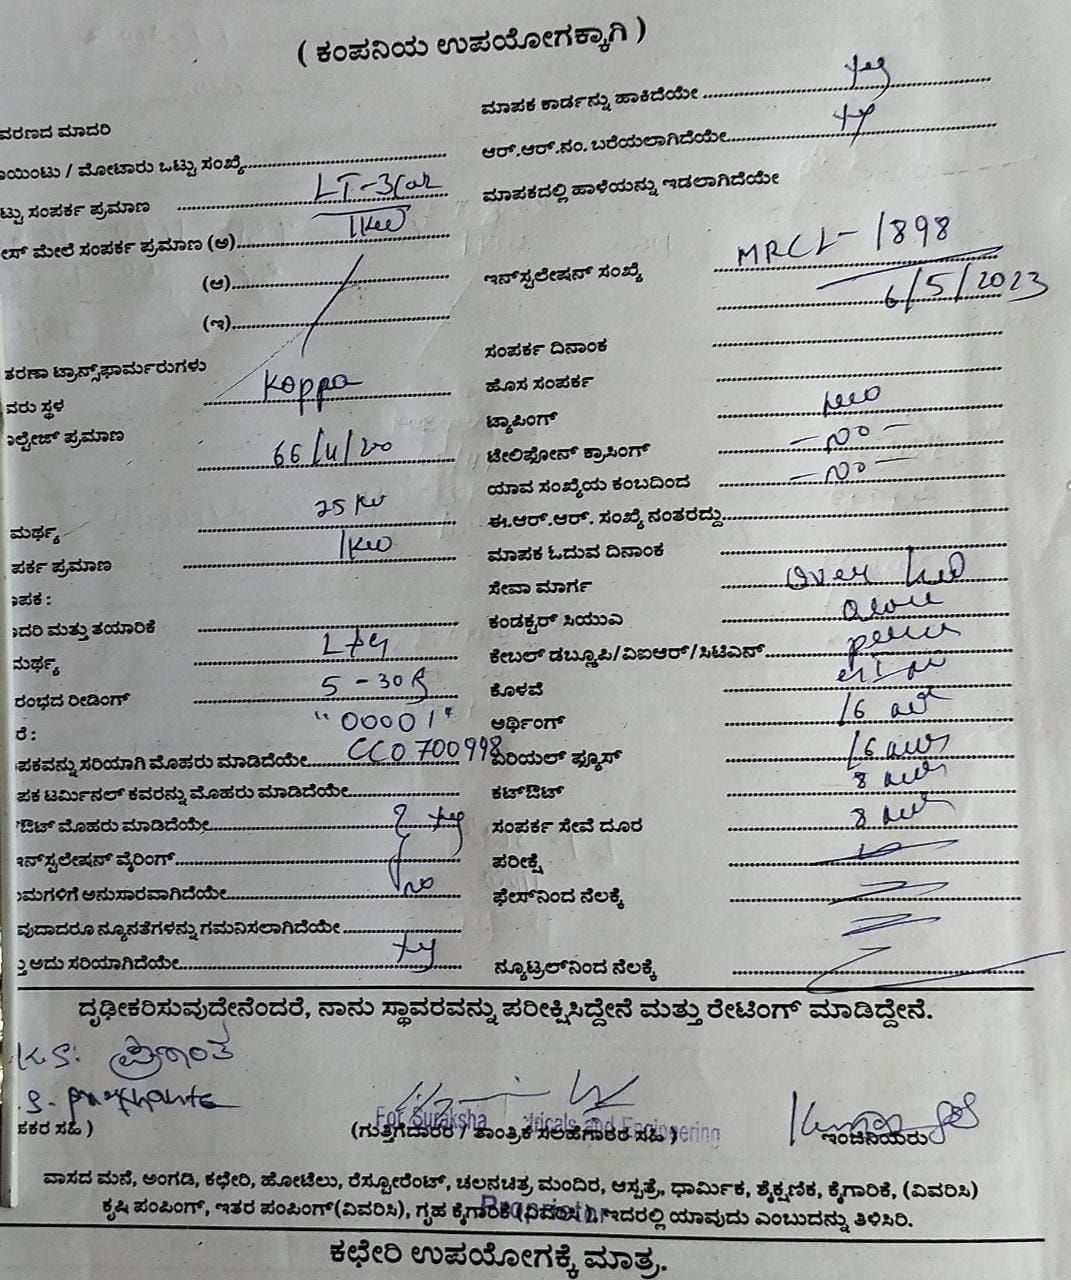 ( ಕಂಪನಿಯ ಉಪಯೋಗಕ್ಕಾಗಿ )
ವರಣದ ಮಾದರಿ
ಾಯಿಂಟು / ಮೋಟಾರು ಒಟ್ಟು ಸಂಖ್ಯೆ
ಟ್ಟು ಸಂಪರ್ಕ ಪ್ರಮಾಣ LT-3
ೇಸ್ ಮೇಲೆ ಸಂಪರ್ಕ ಪ್ರಮಾಣ (ಅ) 1KW
(ಆ)
(ಇ)
ತರಣಾ ಟ್ರಾನ್ಸ್‌ಫಾರ್ಮರುಗಳು
ವರು ಸ್ಥಳ Koppa
ೋಲ್ಟೇಜ್ ಪ್ರಮಾಣ 66/11/
ಮರ್ಥ್ಯ 25 KW
ಪರ್ಕ ಪ್ರಮಾಣ 1KW
ಾಪಕ :
ಾದರಿ ಮತ್ತು ತಯಾರಿಕೆ
ಮರ್ಥ್ಯ L+G
ರಂಭದ ರೀಡಿಂಗ್ 5-30
ರೆ : "00001"
ಪಕವನ್ನು ಸರಿಯಾಗಿ ಮೊಹರು ಮಾಡಿದೆಯೇ CC0700998
ಪಕ ಟರ್ಮಿನಲ್ ಕವರನ್ನು ಮೊಹರು ಮಾಡಿದೆಯೇ
ಔಟ್ ಮೊಹರು ಮಾಡಿದೆಯೇ yes
ಇನ್‌ಸ್ಟಲೇಷನ್ ವೈರಿಂಗ್
ಮಗಳಿಗೆ ಅನುಸಾರವಾಗಿದೆಯೇ no
ವುದಾದರೂ ನ್ಯೂನತೆಗಳನ್ನು ಗಮನಿಸಲಾಗಿದೆಯೇ
ು ಅದು ಸರಿಯಾಗಿದೆಯೇ yes
ಮಾಪಕ ಕಾರ್ಡನ್ನು ಹಾಕಿದೆಯೇ yes
ಆರ್.ಆರ್.ನಂ. ಬರೆಯಲಾಗಿದೆಯೇ yes
ಮಾಪಕದಲ್ಲಿ ಹಾಳೆಯನ್ನು ಇಡಲಾಗಿದೆಯೇ
ಇನ್‌ಸ್ಟಲೇಷನ್ ಸಂಖ್ಯೆ MRCL-1898
6/5/2023
ಸಂಪರ್ಕ ದಿನಾಂಕ
ಹೊಸ ಸಂಪರ್ಕ
ಟ್ಯಾಪಿಂಗ್
ಟೆಲಿಫೋನ್ ಕ್ರಾಸಿಂಗ್ -no-
ಯಾವ ಸಂಖ್ಯೆಯ ಕಂಬದಿಂದ -no-
ಈ.ಆರ್.ಆರ್. ಸಂಖ್ಯೆ ನಂತರದ್ದು
ಮಾಪಕ ಓದುವ ದಿನಾಂಕ
ಸೇವಾ ಮಾರ್ಗ Over
ಕಂಡಕ್ಟರ್ ಸಿಯುವಿ
ಕೇಬಲ್ ಡಬ್ಲೂಪಿ/ವಿಐಆರ್/ಸಿಟಿಎಸ್
ಕೊಳವೆ
ಅರ್ಥಿಂಗ್ 16
ಏರಿಯಲ್ ಫ್ಯೂಸ್ 16
ಕಟ್‌ಔಟ್ 8
ಸಂಪರ್ಕ ಸೇವೆ ದೂರ 8
ಪರೀಕ್ಷೆ
ಫೇಸ್‌ನಿಂದ ನೆಲಕ್ಕೆ
ನ್ಯೂಟ್ರಲ್‌ನಿಂದ ನೆಲಕ್ಕೆ
ದೃಢೀಕರಿಸುವುದೇನೆಂದರೆ, ನಾನು ಸ್ಥಾವರವನ್ನು ಪರೀಕ್ಷಿಸಿದ್ದೇನೆ ಮತ್ತು ರೇಟಿಂಗ್ ಮಾಡಿದ್ದೇನೆ.
K.S. ಪ್ರಶಾಂತ
For Suraksha tricals and Engineering
ಸಕರ ಸಹಿ ) (ಗುತ್ತಿಗೆದಾರರ / ತಾಂತ್ರಿಕ ಸಲಹೆಗಾರರ ಸಹಿ ) ಇಂಜಿನಿಯರು
ವಾಸದ ಮನೆ, ಅಂಗಡಿ, ಕಛೇರಿ, ಹೋಟೆಲು, ರೆಸ್ಟೋರೆಂಟ್, ಚಲನಚಿತ್ರ ಮಂದಿರ, ಆಸ್ಪತ್ರೆ, ಧಾರ್ಮಿಕ, ಶೈಕ್ಷಣಿಕ, ಕೈಗಾರಿಕೆ, (ವಿವರಿಸಿ)
ಕೃಷಿ ಪಂಪಿಂಗ್, ಇತರ ಪಂಪಿಂಗ್(ವಿವರಿಸಿ), ಗೃಹ ಕೈಗಾರಿಕೆ (ವಿವರಿಸಿ ), ಇದರಲ್ಲಿ ಯಾವುದು ಎಂಬುದನ್ನು ತಿಳಿಸಿರಿ.
Proprietor
ಕಛೇರಿ ಉಪಯೋಗಕ್ಕೆ ಮಾತ್ರ.